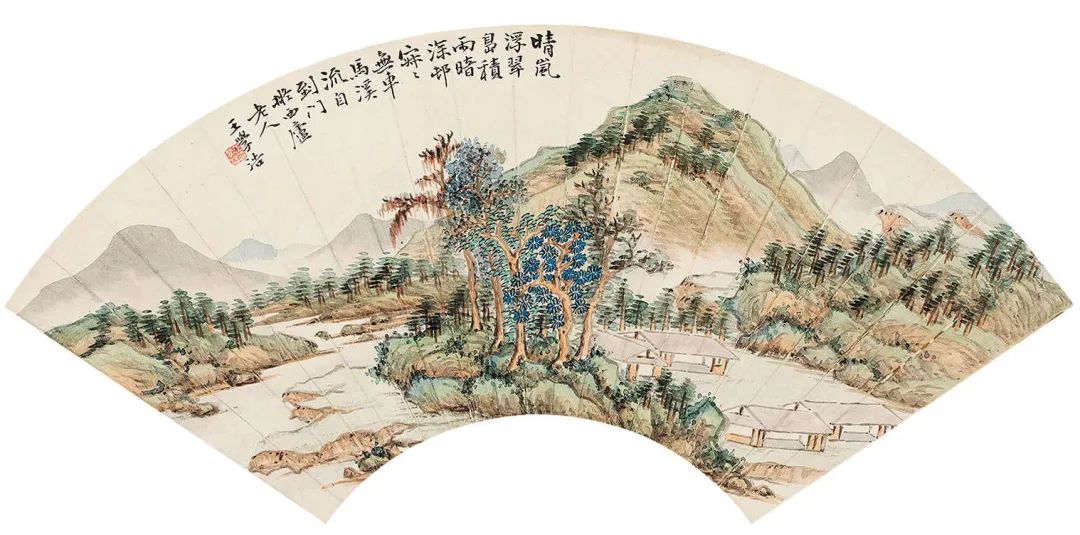 晴嵐
浮翠
島積
雨暗
深邨
寂〻
無車
馬溪
流自
到门
西廬
老人
王學浩